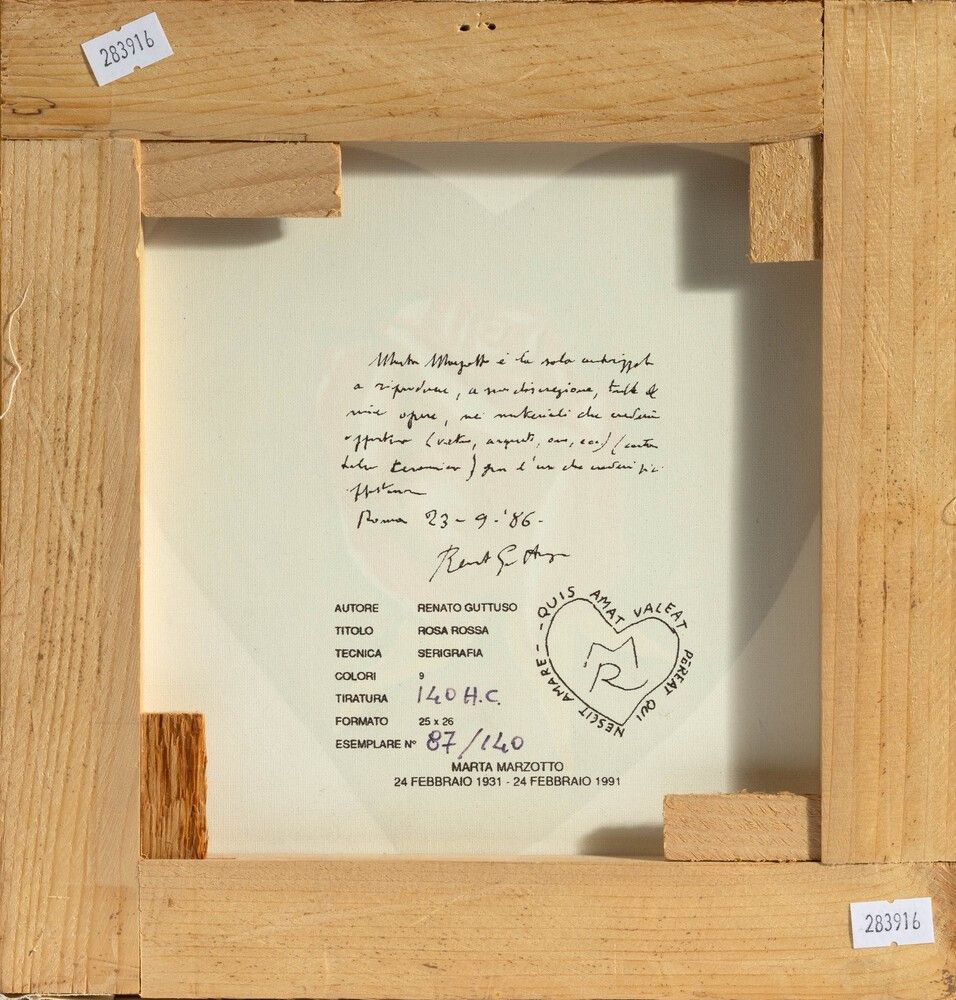 283916
Marta Marzotto è la sola autorizzata
a riprodurre, a sua discrezione, tutte le
mie opere, nei materiali che crederà
opportuno (vetro, argento, oro, ecc)
ceramica) per l'uso che crederà più
Roma 23-9-'86-
Renato Guttuso
AUTORE RENATO GUTTUSO
TITOLO ROSA ROSSA
TECNICA SERIGRAFIA
COLORI 9
TIRATURA 140 H.C.
FORMATO 25 x 26
ESEMPLARE N° 87/140
QUIS AMAT VALEAT PEREAT QUI NESCIT AMARE
MR
MARTA MARZOTTO
24 FEBBRAIO 1931 - 24 FEBBRAIO 1991
283916